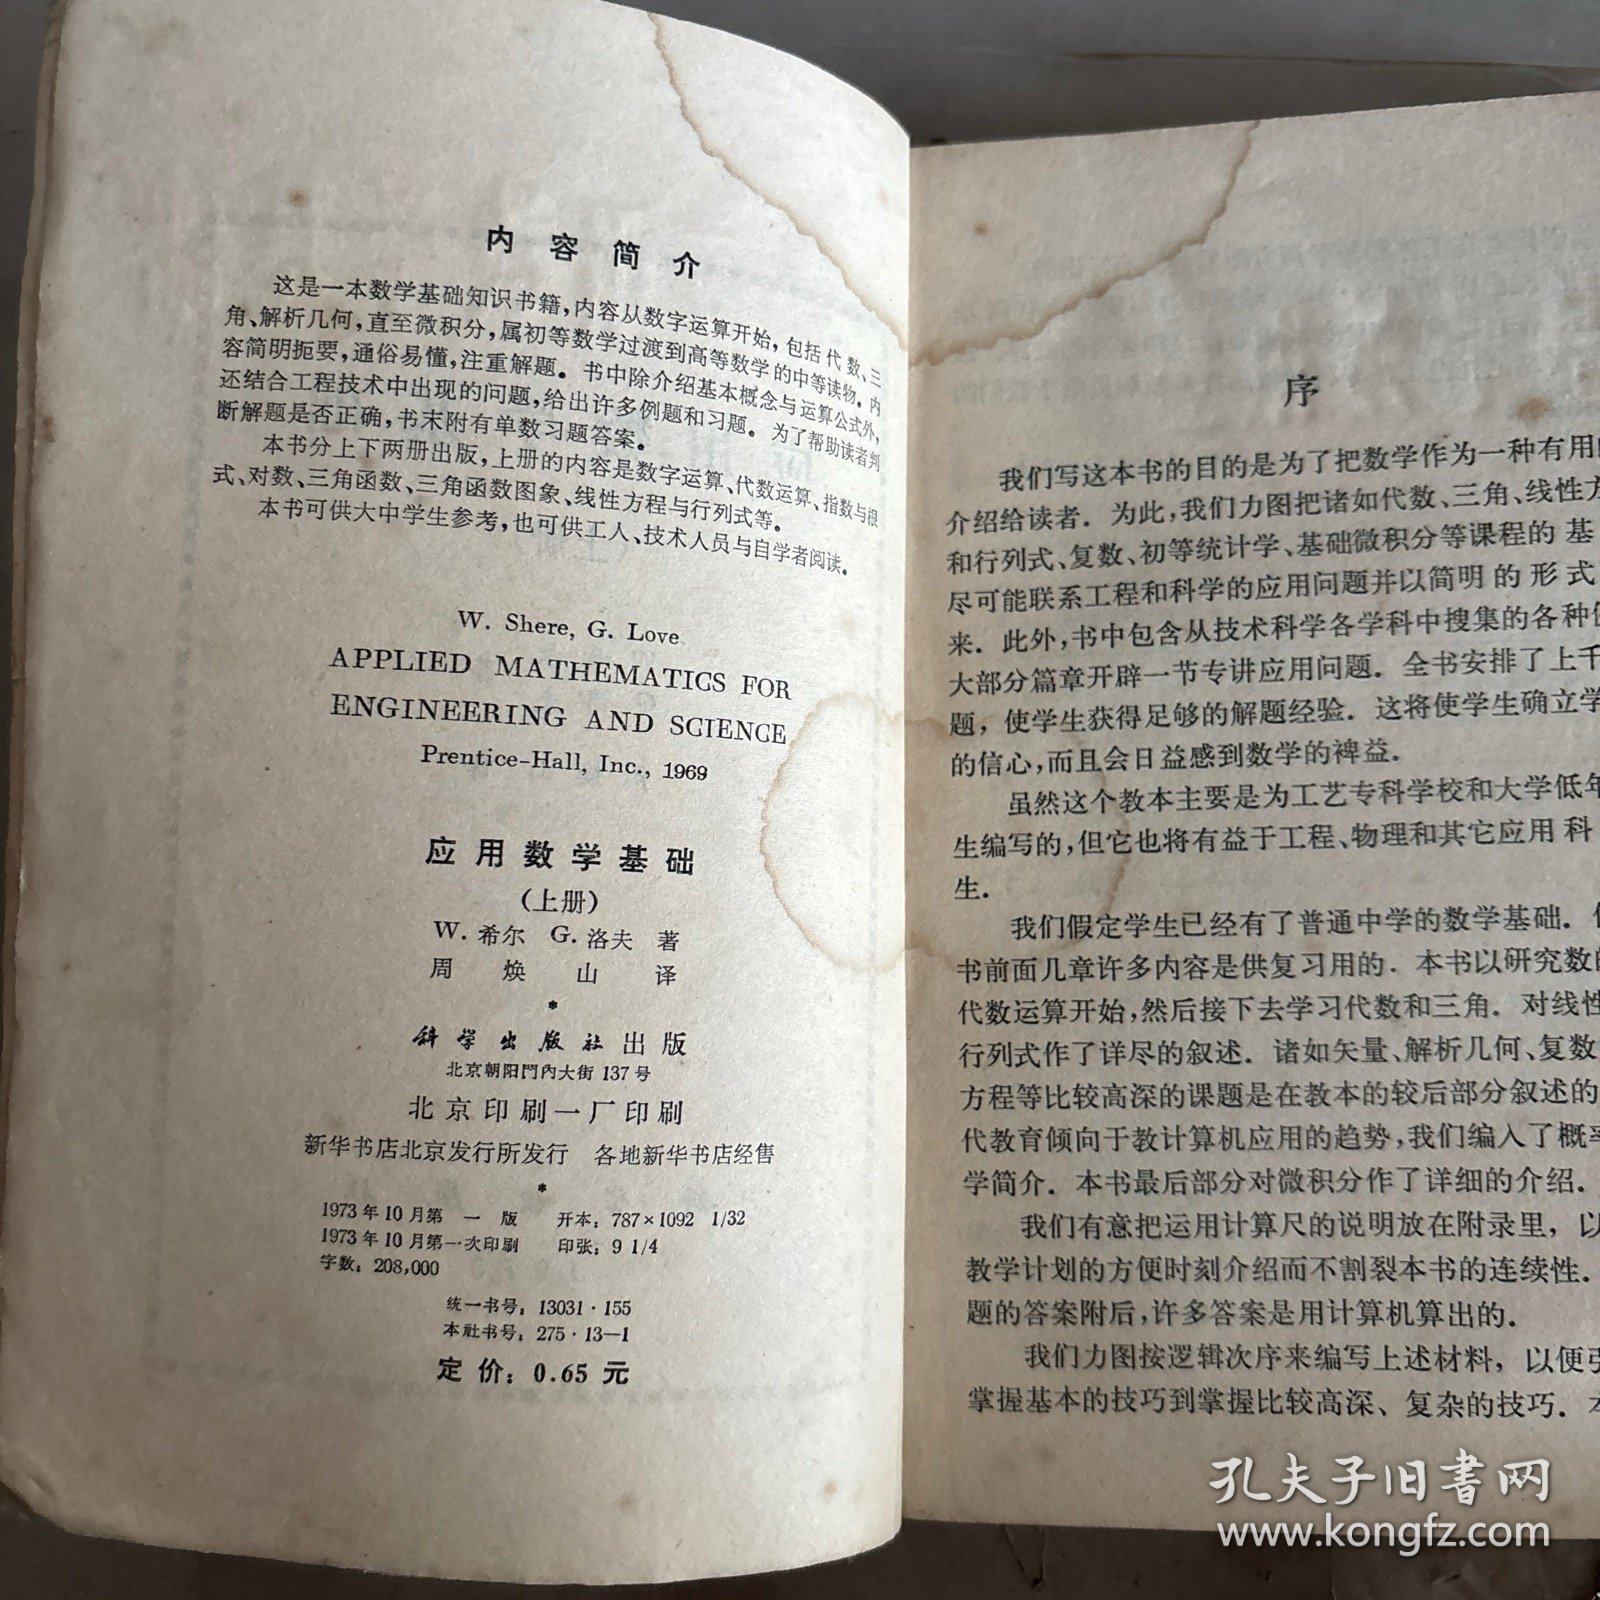 内容简介
这是一本数学基础知识书籍，内容从数字运算开始，包括代数、三
角、解析几何，直至微积分，属初等数学过渡到高等数学的中等读物。内
容简明扼要，通俗易懂，注重解题。书中除介绍基本概念与运算公式外，
还结合工程技术中出现的问题，给出许多例题和习题。为了帮助读者判
断解题是否正确，书末附有单数习题答案。
本书分上下两册出版，上册的内容是数字运算、代数运算、指数与根
式、对数、三角函数、三角函数图象、线性方程与行列式等。
本书可供大中学生参考，也可供工人、技术人员与自学者阅读。
W. Shere, G. Love
APPLIED MATHEMATICS FOR
ENGINEERING AND SCIENCE
Prentice-Hall, Inc., 1969
应用数学基础
（上册）
W. 希尔 G. 洛夫 著
周焕山 译
*
科学出版社出版
北京朝阳門內大街 137 号
北京印刷一厂印刷
新华书店北京发行所发行 各地新华书店经售
*
1973 年 10 月第 一 版 开本：787×1092 1/32
1973 年 10 月第一次印刷 印张：9 1/4
字数：208,000
统一书号：13031·155
本社书号：275·13—1
定价：0.65 元
序
我们写这本书的目的是为了把数学作为一种有用
介绍给读者．为此，我们力图把诸如代数、三角、线性方
和行列式、复数、初等统计学、基础微积分等课程的基
尽可能联系工程和科学的应用问题并以简明的形式
来．此外，书中包含从技术科学各学科中搜集的各种
大部分篇章开辟一节专讲应用问题．全书安排了上千
题，使学生获得足够的解题经验．这将使学生确立学
的信心，而且会日益感到数学的裨益．
虽然这个教本主要是为工艺专科学校和大学低年
生编写的，但它也将有益于工程、物理和其它应用科
生．
我们假定学生已经有了普通中学的数学基础．
书前面几章许多内容是供复习用的．本书以研究数的
代数运算开始，然后接下去学习代数和三角．对线性
行列式作了详尽的叙述．诸如矢量、解析几何、复数
方程等比较高深的课题是在教本的较后部分叙述的
代教育倾向于教计算机应用的趋势，我们编入了概率
学简介．本书最后部分对微积分作了详细的介绍．
我们有意把运用计算尺的说明放在附录里，以
教学计划的方便时刻介绍而不割裂本书的连续性．
题的答案附后，许多答案是用计算机算出的．
我们力图按逻辑次序来编写上述材料，以便引
掌握基本的技巧到掌握比较高深、复杂的技巧．本
孔夫子旧書网
www.kongfz.com